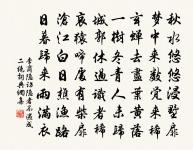 秋水悠悠浸墅扉
夢中來數覺來稀
玄蟬去盡葉黃落
一樹冬青人未歸
城郭休過識者稀
哀猿啼處有柴扉
滄江白日樵漁路
日暮歸來雨滿衣
李商隱訪隱者不遇成
二絕詞典網書